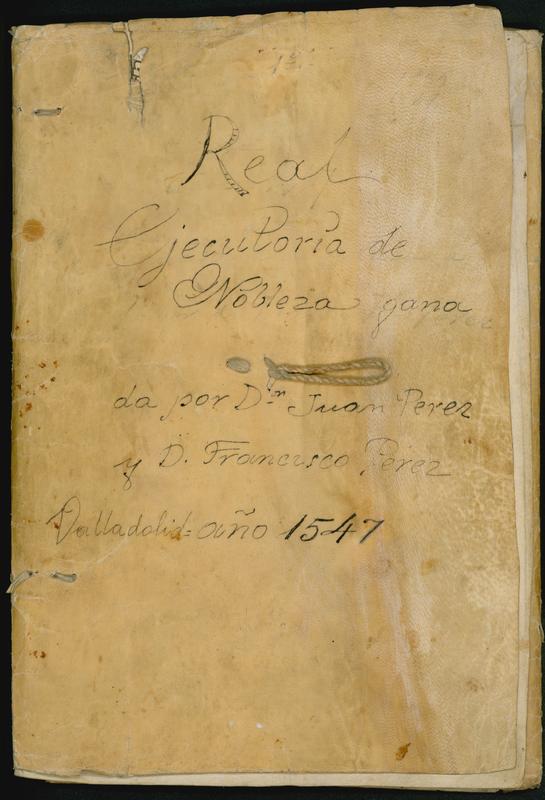 Real
Ejecutoria de
Nobleza gana
da por Dⁿ Juan Perez
y D. Francisco Perez
Valladolid=año 1547